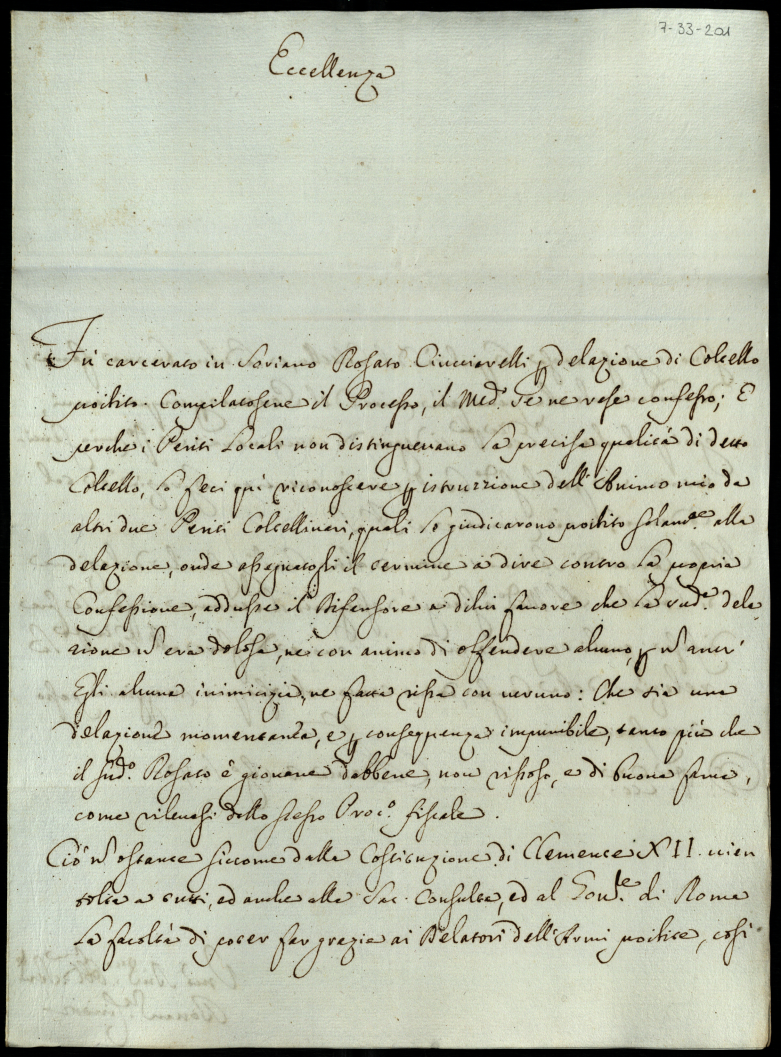 7-33-201
Eccellenza
Fù carcerato in Soriano Rosato Cinciarelli p delazione di Coltello
proibito. Compilatosene il Processo, il Med.º Se ne rese confesso; E
perche i Periti Locali non distinguevano la precisa qualità di detto
Coltello, lo feci quì riconoscere p istruzzione dell'Animo mio da
altri due Periti Coltellinari, quali lo giudicarono proibito solam.te alla
delazione, onde assegnatogli il termine à dire contro la propria
Confessione, addusse il Difensore a di lui favore che la sud.ª dela-
zione ñ era dolosa, nè con animo di offendere alcuno, p ñ aver
Egli alcuna inimicizia, ne fatta rissa con veruno: Che sia una
delazione momentanea, e p conseguenza impunibile, tanto più che
il sud.º Rosato è giovane dabbene, non rissoso, e di buona fama,
come rilevasi dallo stesso Proc.º fiscale.
Ciò ñ ostante siccome dalla Costituzione di Clemente XII. vien
tolta a tutti, ed anche alla Sac. Consulta, ed al Gov.re di Roma
la facoltà di poter far grazie ai Delatori dell'Armi proibite, così